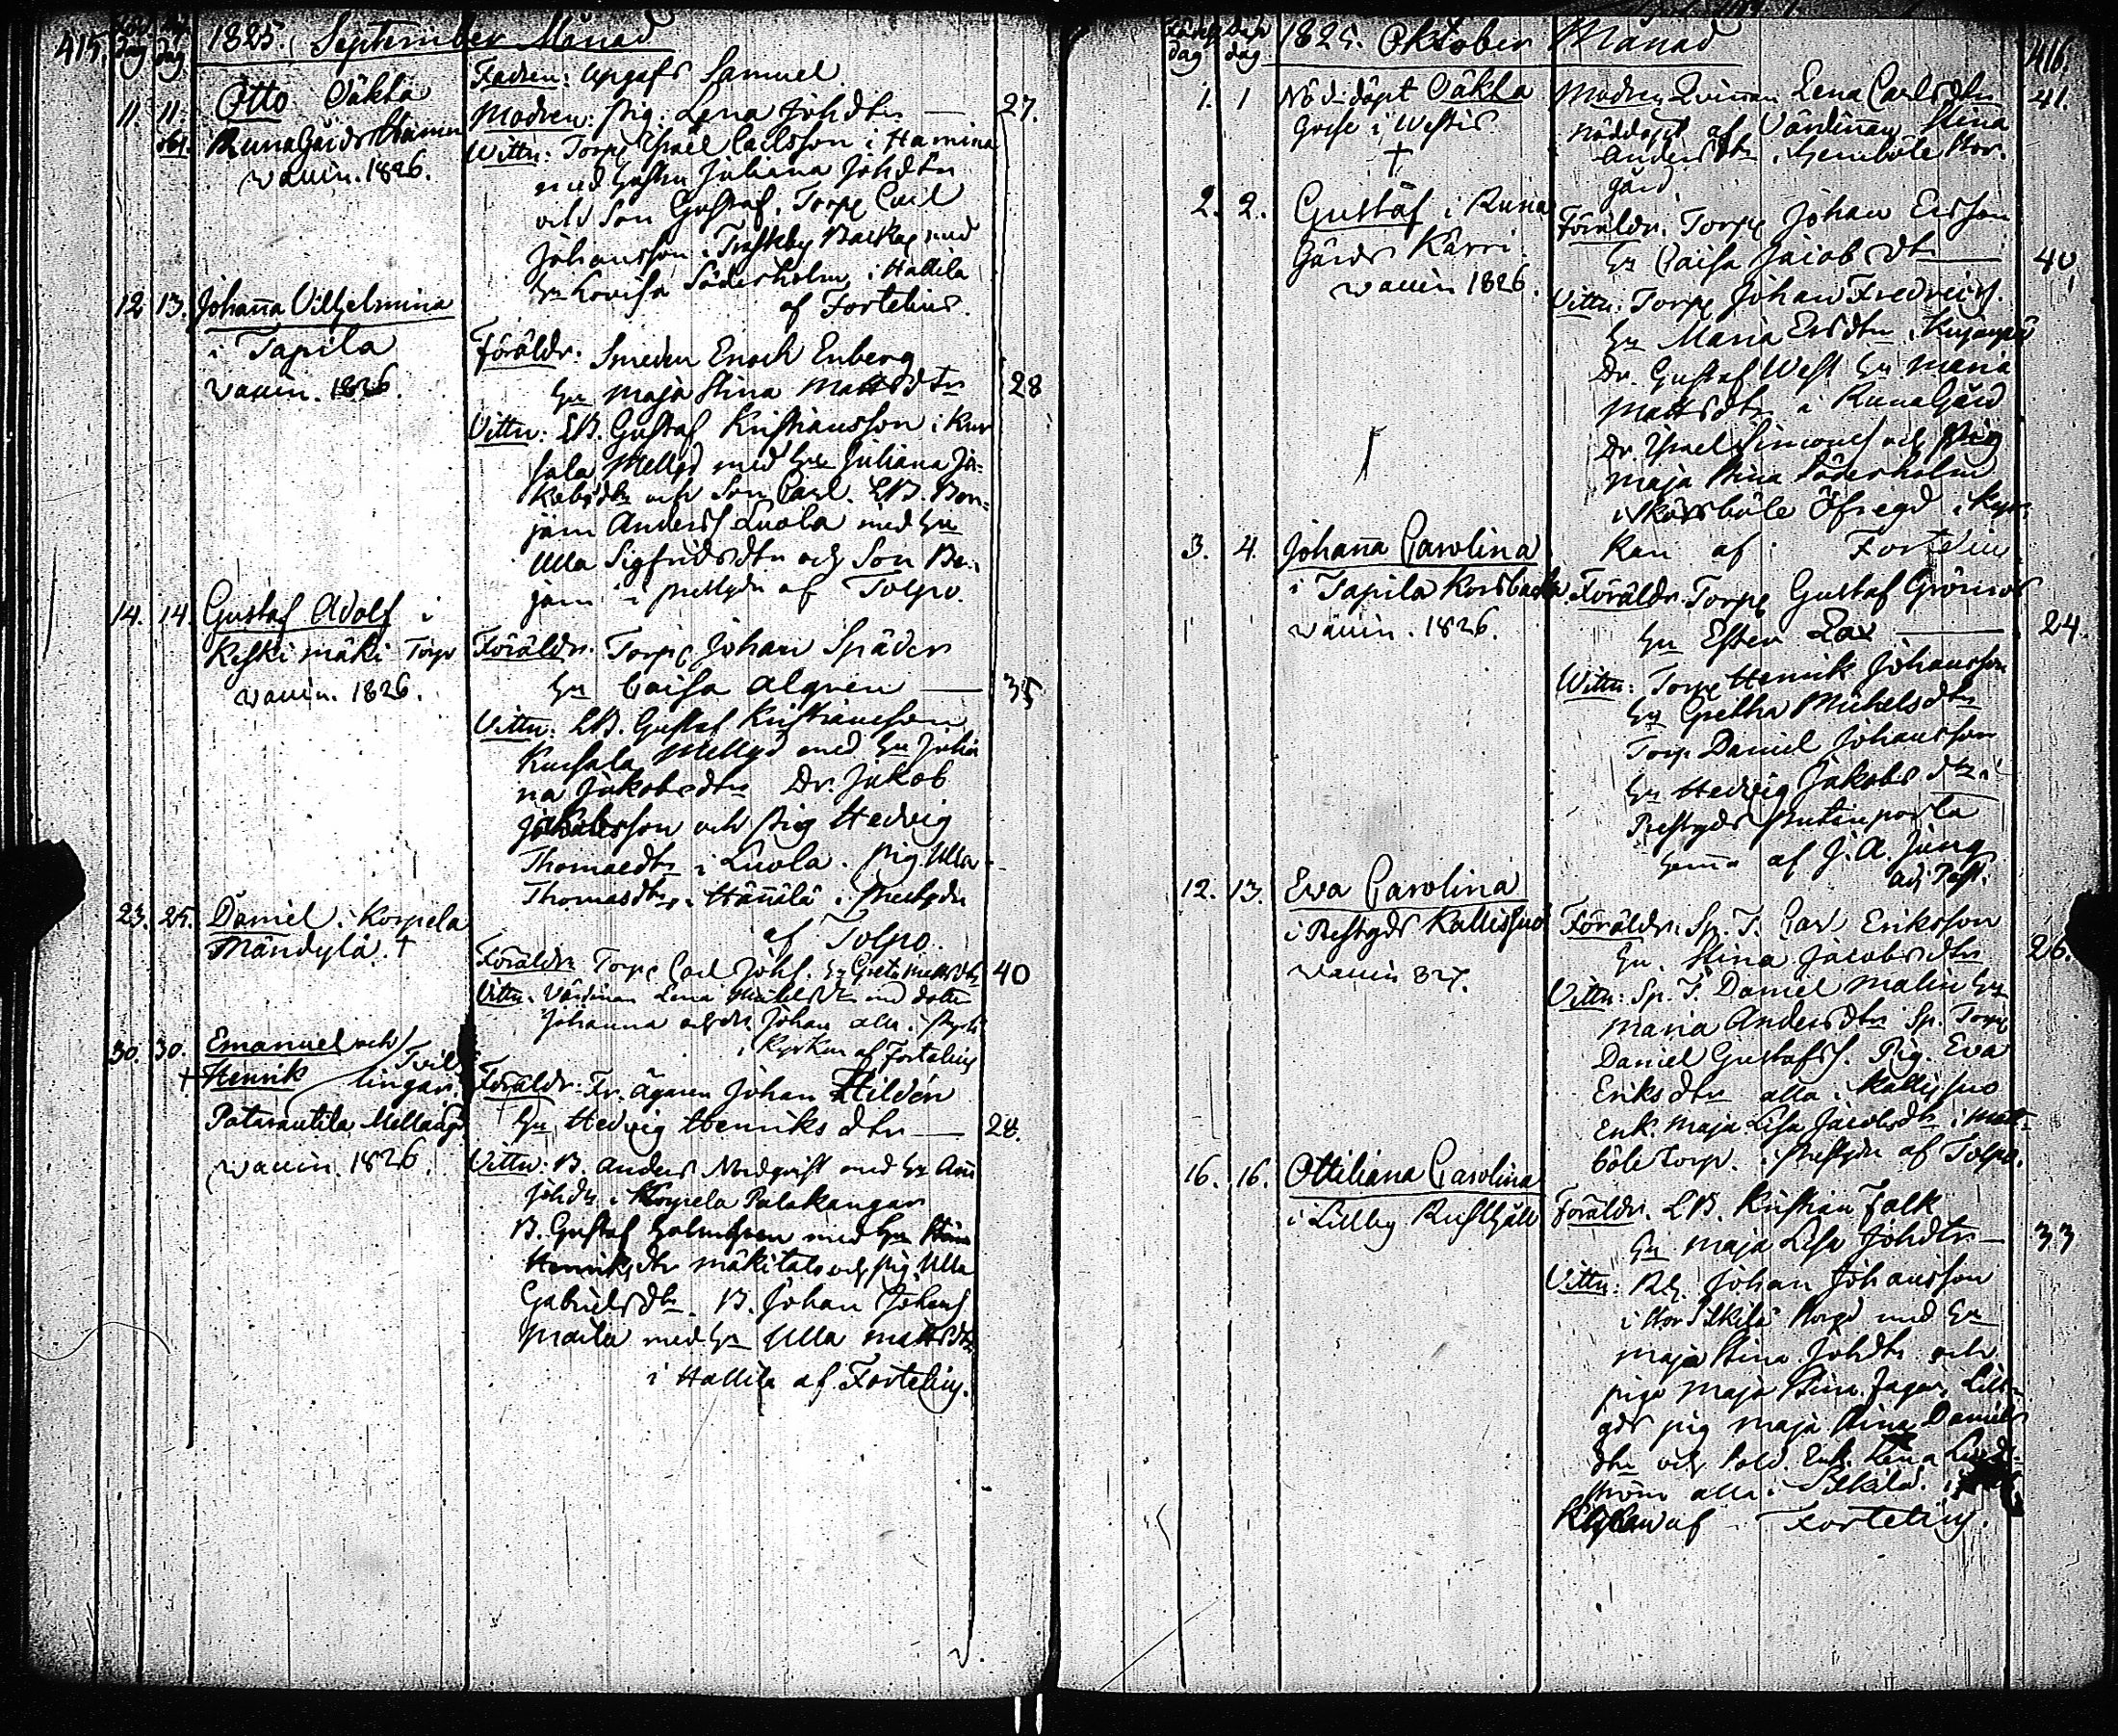 415.
Föd. dag Döp. dag
1825. September Månad
11. 11. Otto Oäkta
Runagårds Hamina
vaccin. 1826.
Fadren: upgafs Samuel
Modren: Pig. Lena Johdtr — 27.
Wittn: Torp Israel Carlsson i Hamina
med hustru Juliana Johdtr
och Son Gustaf. Torp Carl
Johansson i Träskby Backas med
hu Lovisa Söderholm i Hallila
af Fortelius.
12 13. Johanna Vilhelmina
i Tapila
vaccin. 1826.
Föräldr: Smeden Enoch Enberg
hu Maja Stina Mattsdtr 28
Vittn: LB. Gustaf Kristiansson i Kur
sala Mellgd med hu Juliana Ja-
kobsdtr och Son Carl. LB. Ben-
jam Anderss Luola med hu
Ulla Sigfridsdtr och Son Ben-
jam i Prestgdn af Tolpo.
14. 14. Gustaf Adolf i
Keskimäki Torp
vaccin. 1826.
Föräldr. Torp Johan Späder
hu Caisa Algren — 35
Vittn: LB. Gustaf Kristiansson
Kursala Mellgd med hu Julia
na Jakobsdtr Dr. Jakob
Jakobsson och Pig Hedvig
Thomasdtr i Luola. Pig. Ulla
Thomasdtr i Hännilä i Prestgdn
af Tolpo.
23. 25. Daniel i Korpela
Mändylä. †
Föräldr Torp Carl Johs. hu Greta Mattsdtr 40
Vittn. Värdinnan Lena Michelsdtr med dotter
Johanna och dr. Johan alla i
i Kyrkan af Fortelius
30. 30. Emanuel och
† Henrik Tvil
lingar.
Patarautila Mellangd
vaccin. 1826.
Föräldr: Fr. Ägaren Johan Hildén
hu Hedvig Henriksdtr — 28.
Vittn: B. Anders Nordqvist med hu Anna
Johdtr i Korpela Palakangas
B. Gustaf Holmgren med hu Stina
Henriksdtr Mäkitalo och Pig. Ulla
Gabrielsdtr. B. Johan Johans
Maila med hu Ulla Mattsdtr
i Hallila af Fortelius.
416.
Födelse dag Döp dag
1825. Oktober Månad
1. 1 Nöd-döpt Oäkta
Gosse i Westis
†
Modren Qvinnan Lena Carlsdtr 41.
nöddöpt af Värdinnan Stina
Andersdtr i Hemböle Stor-
gård
2. 2. Gustaf i Runa
Gårds Kärri
vaccin 1826.
Föräldr. Torp Johan Ersson
hu Caisa Jacobsdtr — 40
Vittn: Torp Johan Fredrics.
hu Maria Ersdtr i
Dr. Gustaf West hu Maria
Mattsdtr i Runagård
Dr. Israel Simons och Pig
Maja Stina Söderholm
i Skärsböle Öfregd i Kyr-
kan af Fortelius
3. 4. Johanna Carolina
i Tapila Korsbacka
vaccin. 1826.
Föräldr. Torp Gustaf Grönroos
hu Ester Lax — 24
Wittn: Torp Henrik Johansson
hu Gretha Michelsdtr
Torp Daniel Johansson
hu Hedvig Jakobsdtr i
Prestgds
hemma af J. A. Jung
adj. Past.
12. 13. Eva Carolina
i Prestgds Kallissuo
vaccin 827.
Föräldr: Sp. T. Carl Eriksson
hu. Stina Jacobsdtr 26.
Vittn: Sp. T. Daniel Malin hu
Maria Andersdtr Sp. Torp
Daniel Gustafss. Pig. Eva
Eriksdtr alla i Kallissuo
Enk. Maja Lisa Jacobsdtr i Matt-
böle Torp. i Prestgdn af Tolpo.
16. 16. Ottiliana Carolina
i Lillby Rusthåll
Föräldr. LB. Kristian Falk
hu Maja Lisa Johdtr — 33
Vittn: Rh. Johan Johansson
i Stor Silkilä Norgd med hu
Maja Stina Johdtr och
piga Maja Stina Jager, Lill-
gds pig Maja Stina Daniels
dtr och Sold. Enk. Lena Lind-
ström alla i Silkilä. i
Kyrkan af Fortelius.